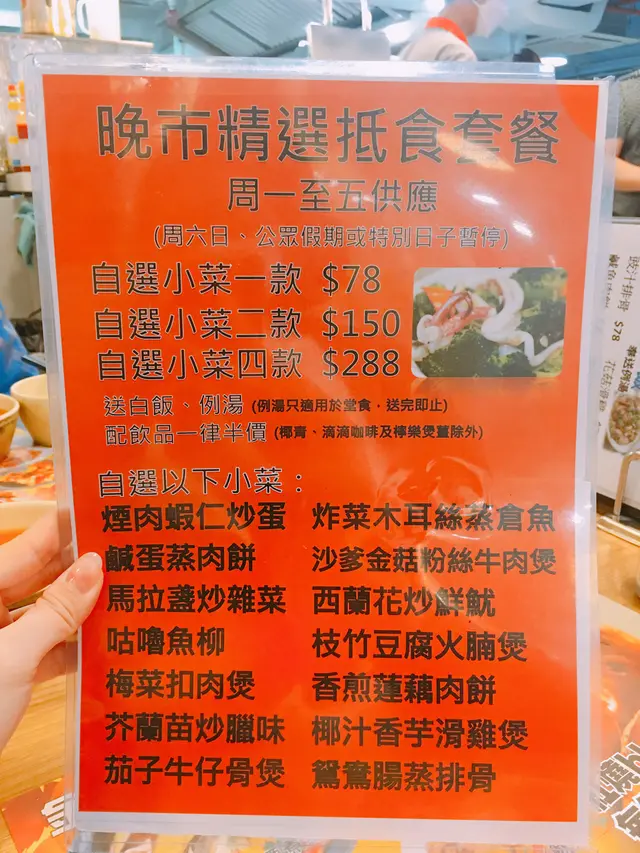 晚市精選抵食套餐
周一至五供應
(周六日、公眾假期或特別日子暫停)
自選小菜一款 $78
自選小菜二款 $150
自選小菜四款 $288
送白飯、例湯 (例湯只適用於堂食，送完即止)
配飲品一律半價 (椰青、滴滴咖啡及檸樂煲薑除外)
自選以下小菜：
煙肉蝦仁炒蛋 炸菜木耳絲蒸倉魚
鹹蛋蒸肉餅 沙爹金菇粉絲牛肉煲
馬拉盞炒雜菜 西蘭花炒鮮魷
咕嚕魚柳 枝竹豆腐火腩煲
梅菜扣肉煲 香煎蓮藕肉餅
芥蘭苗炒臘味 椰汁香芋滑雞煲
茄子牛仔骨煲 鴛鴦腸蒸排骨
豉汁排骨
$78